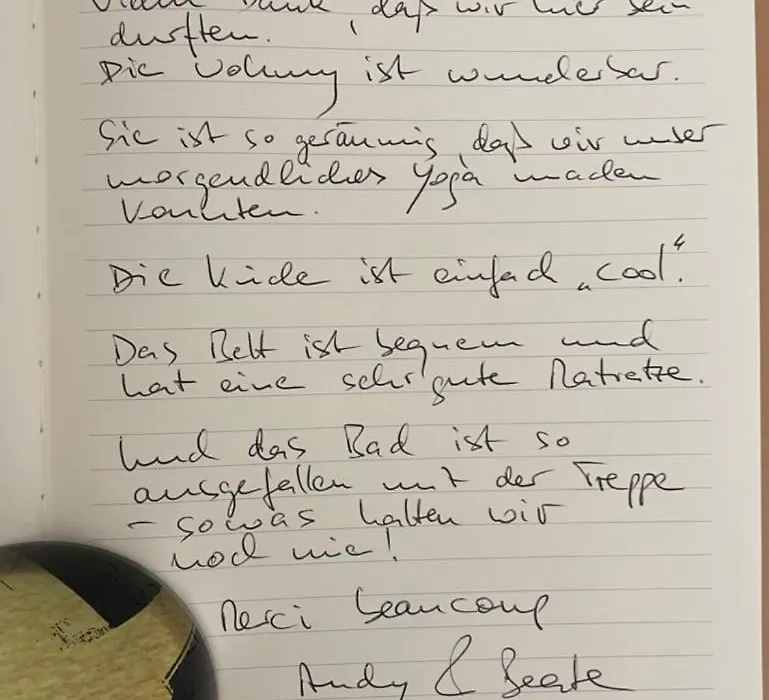 Vielen Dank, daß wir hier sein
durften.
Die Wohnung ist wunderbar.
Sie ist so geräumig, daß wir unser
morgendliches Yoga machen
konnten.
Die Küche ist einfach „cool“.
Das Bett ist bequem und
hat eine sehr gute Matratze.
Und das Bad ist so
ausgefallen mit der Treppe
– sowas hatten wir
noch nie!
Merci beaucoup
Andy & Beate